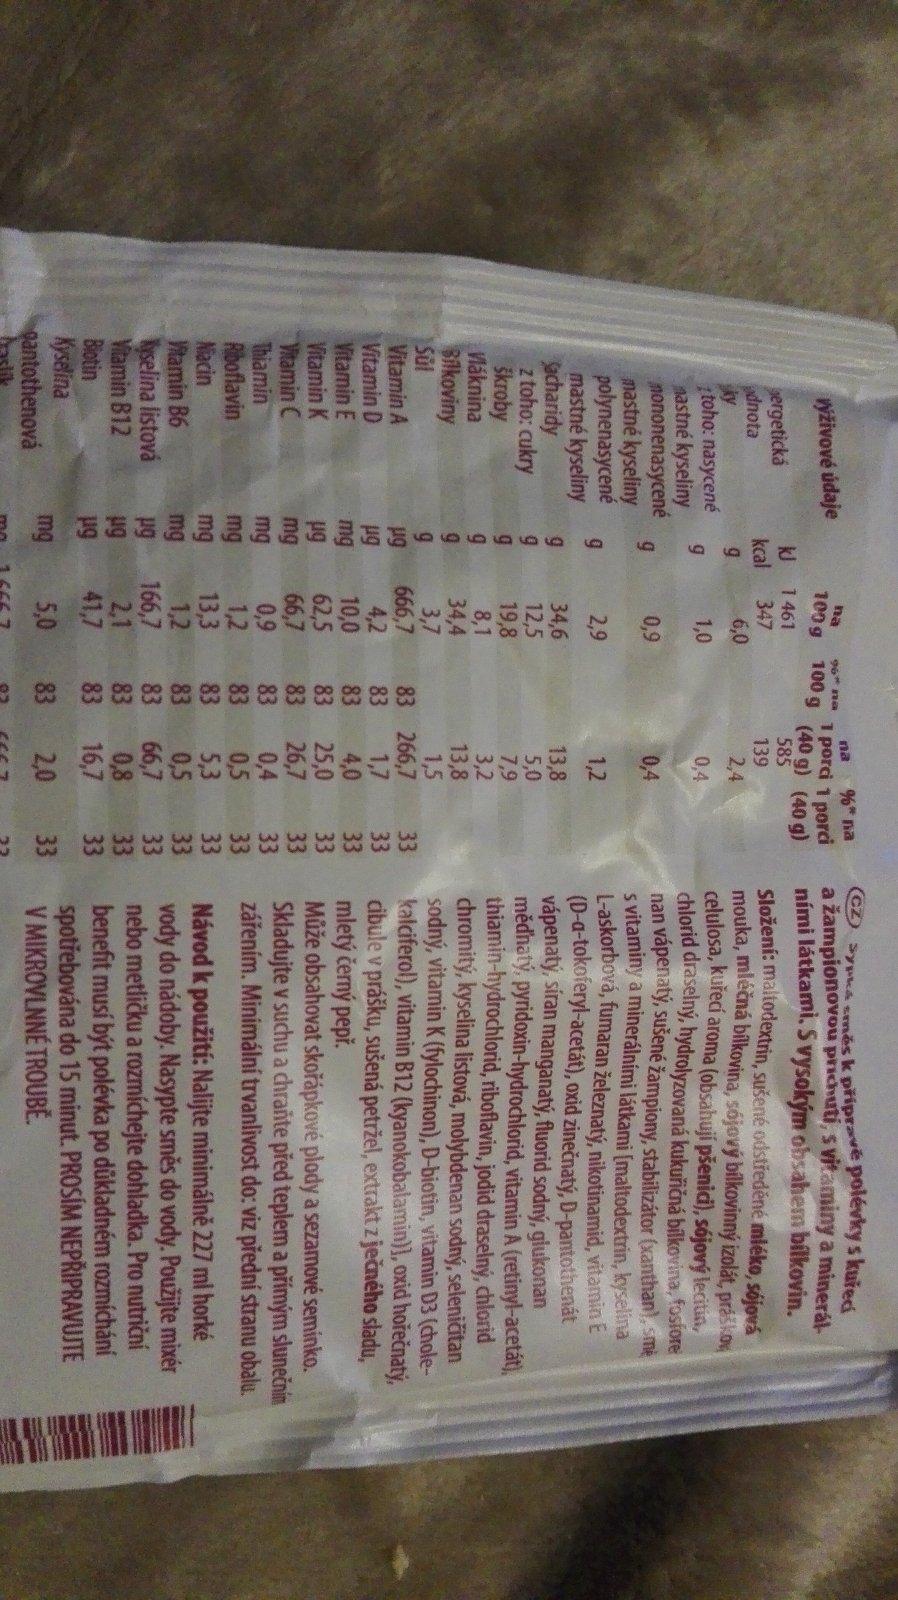 Výživové údaje na 100 g %* na 100 g na 1 porci (40 g) %* na 1 porci (40 g)
kJ 1 461 585
kcal 347 139
g 6,0 2,4
z toho: nasycené
mastné kyseliny g 1,0 0,4
mononenasycené
mastné kyseliny g 0,9 0,4
polynenasycené
mastné kyseliny g 2,9 1,2
Sacharidy g 34,6 13,8
z toho: cukry g 12,5 5,0
škroby g 19,8 7,9
Vláknina g 8,1 3,2
Bílkoviny g 34,4 13,8
Sůl g 3,7 1,5
Vitamin A µg 666,7 83 266,7 33
Vitamin D µg 4,2 83 1,7 33
Vitamin E mg 10,0 83 4,0 33
Vitamin K µg 62,5 83 25,0 33
Vitamin C mg 66,7 83 26,7 33
Thiamin mg 0,9 83 0,4 33
Riboflavin mg 1,2 83 0,5 33
Niacin mg 13,3 83 5,3 33
Vitamin B6 mg 1,2 83 0,5 33
Kyselina listová µg 166,7 83 66,7 33
Vitamin B12 µg 2,1 83 0,8 33
Biotin µg 41,7 83 16,7 33
Kyselina
pantothenová mg 5,0 83 2,0 33
CZ Sypká směs k přípravě polévky s kuřecí
a žampionovou příchutí, s vitaminy a minerál-
ními látkami. S vysokým obsahem bílkovin.
Složení: maltodextrin, sušené odstředěné mléko, sójová
mouka, mléčná bílkovina, sójový bílkovinný izolát,
celulosa, kuřecí aroma (obsahují pšenici), sójový lecitin,
chlorid draselný, hydrolyzovaná kukuřičná bílkovina,
nan vápenatý, sušené žampiony, stabilizátor (xanthan),
s vitaminy a minerálními látkami [maltodextrin, kyselina
L-askorbová, fumaran železnatý, nikotinamid, vitamin E
(D-α-tokoferyl-acetát), oxid zinečnatý, D-pantothenát
vápenatý, síran manganatý, fluorid sodný, glukonan
měďnatý, pyridoxin-hydrochlorid, vitamin A (retinyl-acetát),
thiamin-hydrochlorid, riboflavin, jodid draselný, chlorid
chromitý, kyselina listová, molybdenan sodný, seleničitan
sodný, vitamin K (fylochinon), D-biotin, vitamin D3 (chole-
kalciferol), vitamin B12 (kyanokobalamin)], oxid hořečnatý,
cibule v prášku, sušená petržel, extrakt z ječného sladu,
mletý černý pepř.
Může obsahovat skořápkové plody a sezamové semínko.
Skladujte v suchu a chraňte před teplem a přímým slunečním
zářením. Minimální trvanlivost do: viz přední stranu obalu.
Návod k použití: Nalijte minimálně 227 ml horké
vody do nádoby. Nasypte směs do vody. Použijte mixér
nebo metličku a rozmíchejte dohladka. Pro nutriční
benefit musí být polévka po důkladném rozmíchání
spotřebována do 15 minut. PROSÍM NEPŘIPRAVUJTE
V MIKROVLNNÉ TROUBĚ.